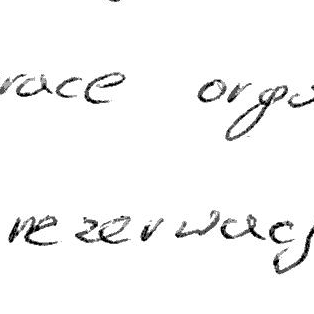 race orga
rezerwacj